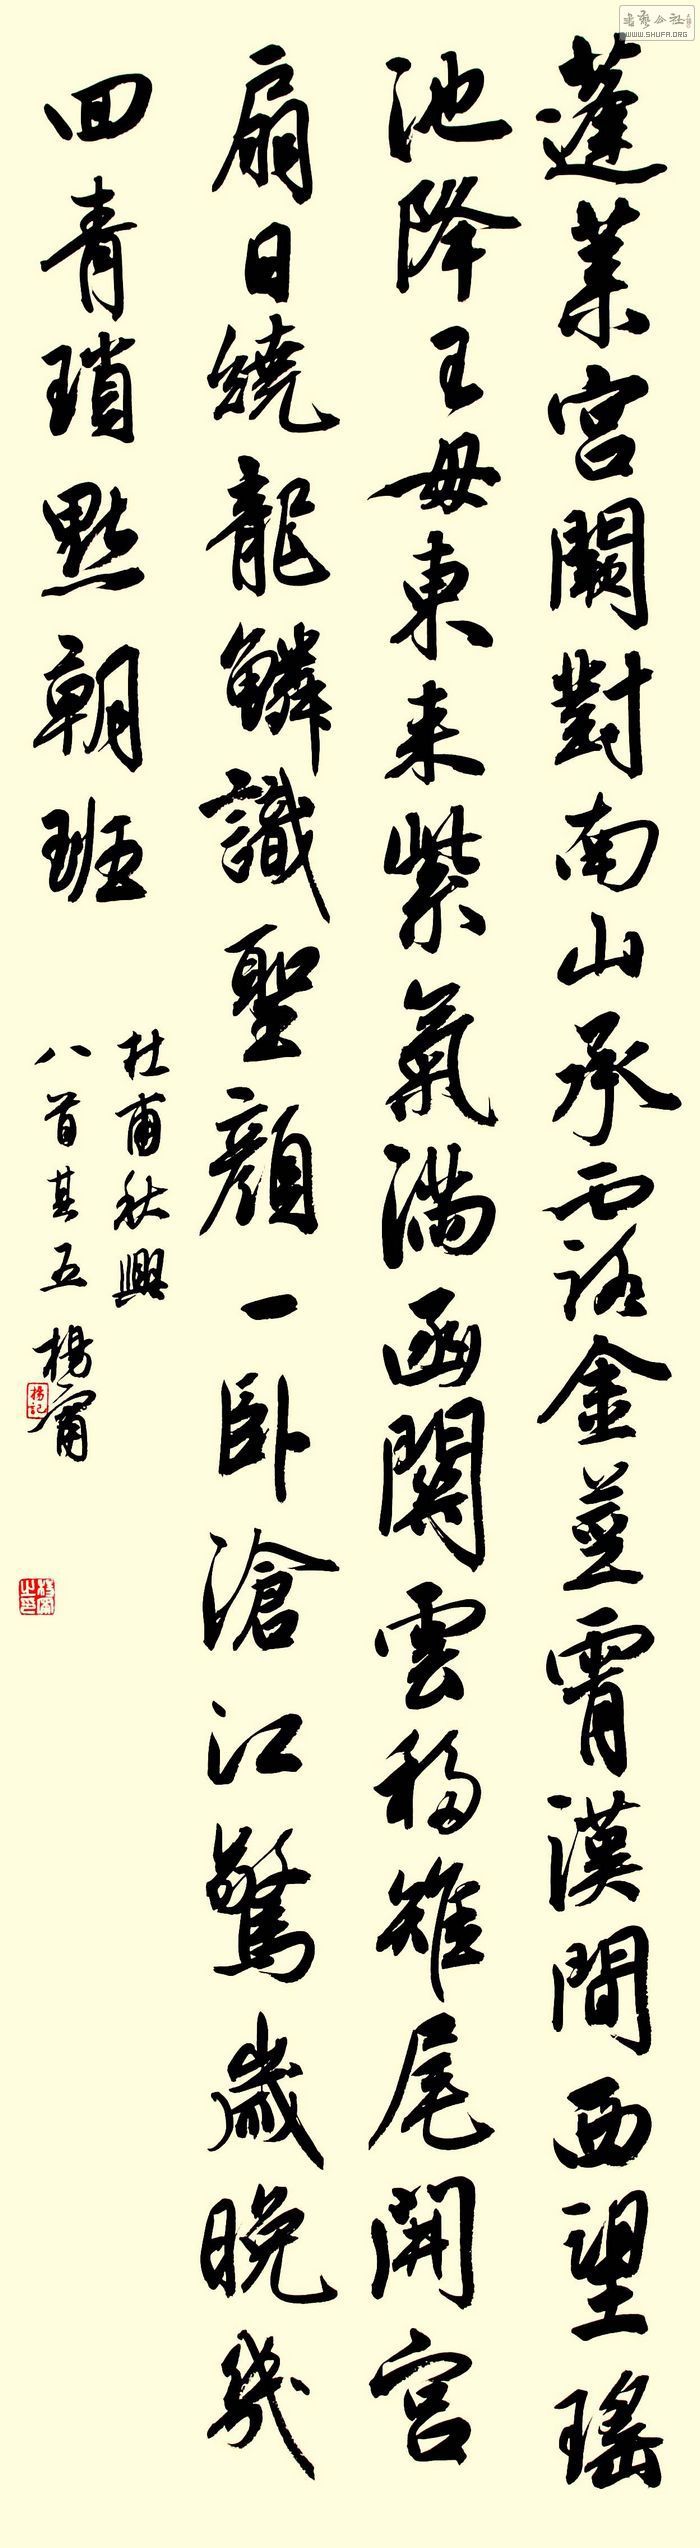 蓬莱宮闕對南山承露金莖霄漢間西望瑤
池降王母東来紫氣滿函關雲移雉尾開宮
扇日繞龍鱗識聖顏一臥滄江驚歲晚幾
回青瑣點朝班
杜甫秋興
八首其五 楊甯
書藝公社
WWW.SHUFA.ORG